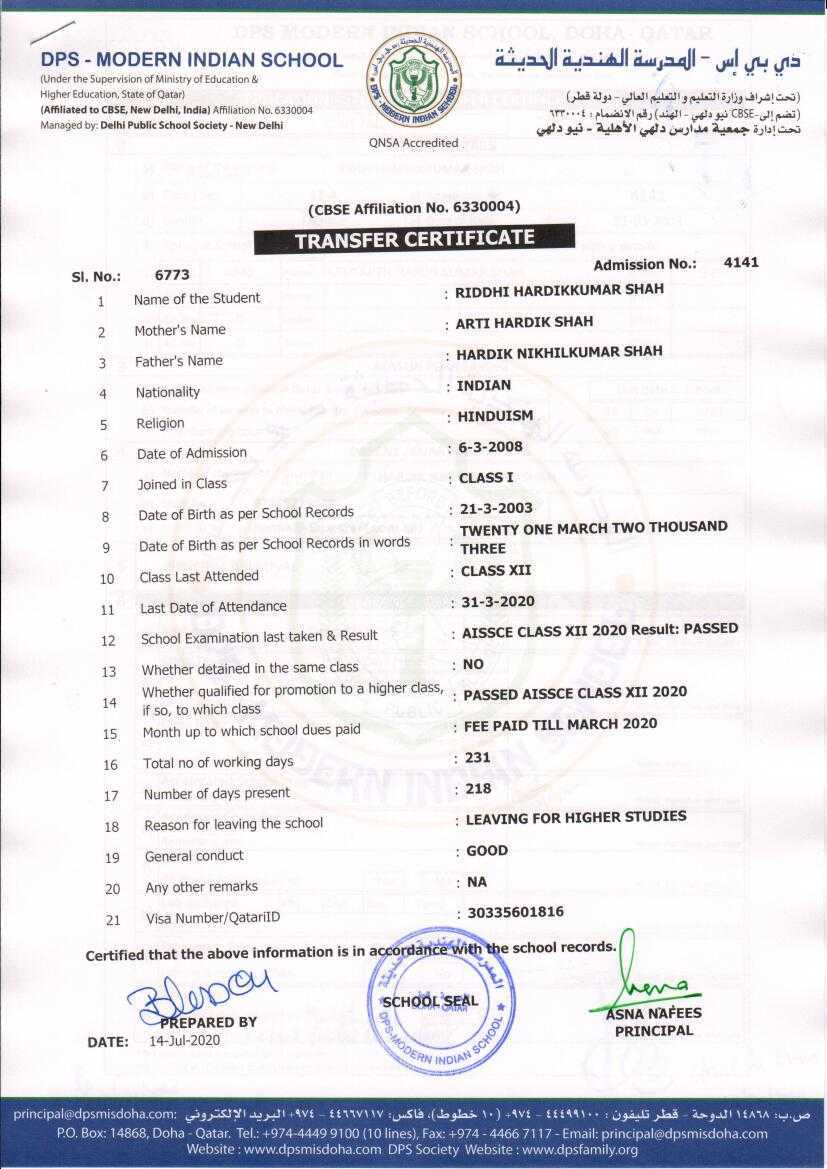 DPS - MODERN INDIAN SCHOOL
(Under the Supervision of Ministry of Education &
Higher Education, State of Qatar)
(Affiliated to CBSE, New Delhi, India) Affiliation No. 6330004
Managed by: Delhi Public School Society - New Delhi
DPS - MODERN INDIAN SCHOOL
QNSA Accredited
دي بي إس - المدرسة الهندية الحديثة
(تحت إشراف وزارة التعليم و التعليم العالي - دولة قطر)
(تضم إلى-CBSE نيو دلهي - الهند) رقم الانضمام : ٦٣٣٠٠٠٤
تحت إدارة جمعية مدارس دلهي الأهلية - نيو دلهي
(CBSE Affiliation No. 6330004)
TRANSFER CERTIFICATE
Sl. No.: 6773 Admission No.: 4141
1 Name of the Student : RIDDHI HARDIKKUMAR SHAH
2 Mother's Name : ARTI HARDIK SHAH
3 Father's Name : HARDIK NIKHILKUMAR SHAH
4 Nationality : INDIAN
5 Religion : HINDUISM
6 Date of Admission : 6-3-2008
7 Joined in Class : CLASS I
8 Date of Birth as per School Records : 21-3-2003
9 Date of Birth as per School Records in words : TWENTY ONE MARCH TWO THOUSAND
THREE
10 Class Last Attended : CLASS XII
11 Last Date of Attendance : 31-3-2020
12 School Examination last taken & Result : AISSCE CLASS XII 2020 Result: PASSED
13 Whether detained in the same class : NO
14 Whether qualified for promotion to a higher class, : PASSED AISSCE CLASS XII 2020
if so, to which class
15 Month up to which school dues paid : FEE PAID TILL MARCH 2020
16 Total no of working days : 231
17 Number of days present : 218
18 Reason for leaving the school : LEAVING FOR HIGHER STUDIES
19 General conduct : GOOD
20 Any other remarks : NA
21 Visa Number/QatariID : 30335601816
Certified that the above information is in accordance with the school records.
المدرسة الهندية الحديثة
SCHOOL SEAL
DOHA-QATAR
DPS-MODERN INDIAN SCHOOL
PREPARED BY
ASNA NAFEES
PRINCIPAL
DATE: 14-Jul-2020
ص.ب: ١٤٨٦٨ الدوحة - قطر تليفون : ٤٤٤٩٩١٠٠ - ٩٧٤+ (١٠ خطوط)، فاكس: ٤٤٦٦٧١١٧ - ٩٧٤+ البريد الإلكتروني :principal@dpsmisdoha.com
P.O. Box: 14868, Doha - Qatar. Tel.: +974-4449 9100 (10 lines), Fax: +974 - 4466 7117 - Email: principal@dpsmisdoha.com
Website : www.dpsmisdoha.com DPS Society Website : www.dpsfamily.org